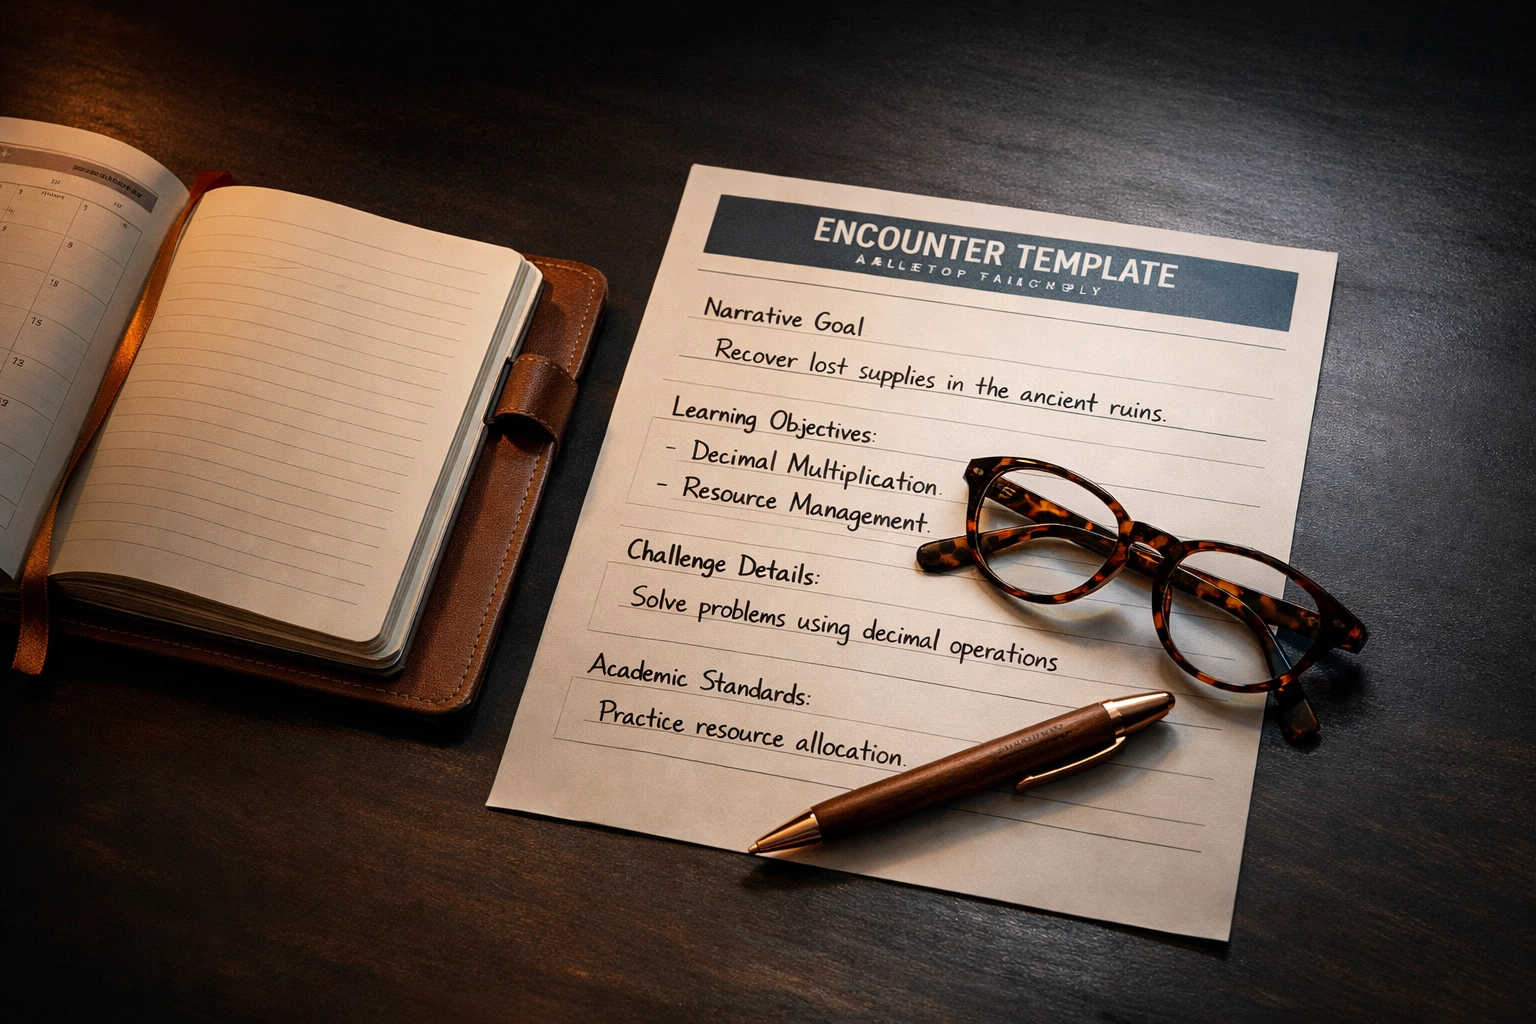 ENCOUNTER TEMPLATE
Narrative Goal
Recover lost supplies in the ancient ruins.
Learning Objectives:
- Decimal Multiplication.
- Resource Management.
Challenge Details:
Solve problems using decimal operations
Academic Standards:
Practice resource allocation.